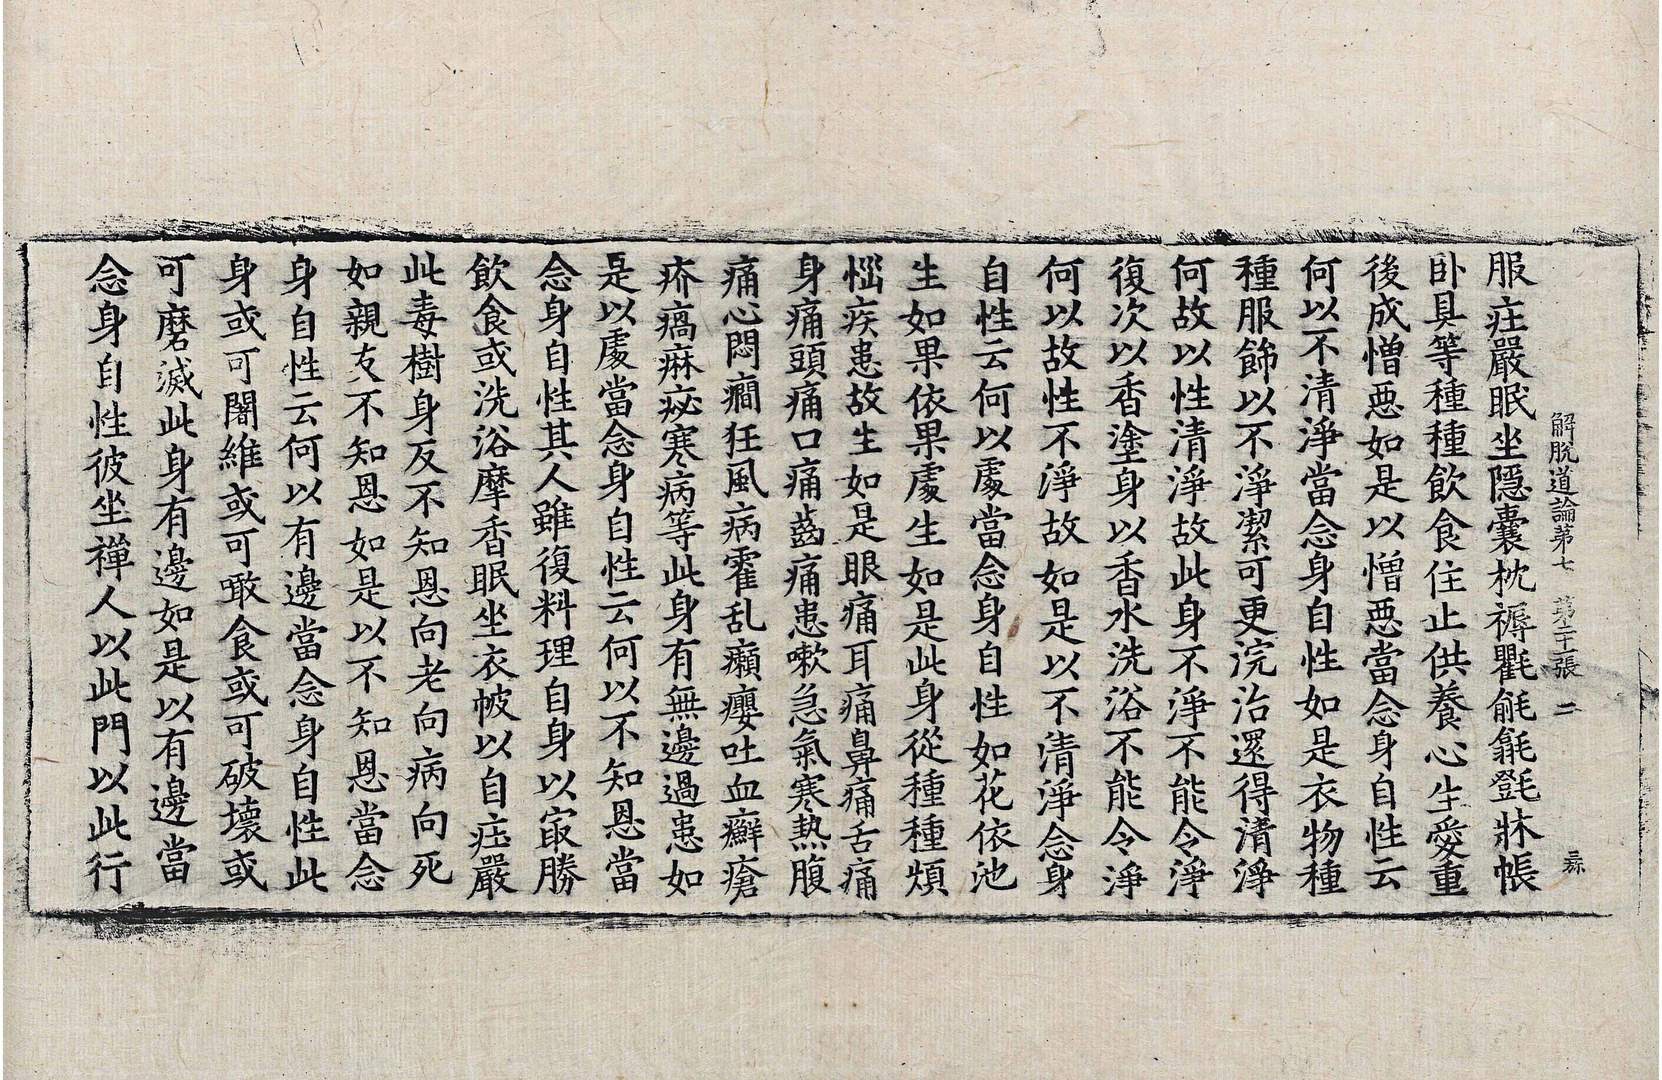 解脫道論第七 第二十張 二
服庄嚴眠坐隱囊枕褥氍㲣𣯾㲪牀帳
卧具等種種飲食住止供養心生愛重
後成憎惡如是以憎惡當念身自性云
何以不清淨當念身自性如是衣物種
種服飾以不淨潔可更浣治還得清淨
何故以性清淨故此身不淨不能令淨
復次以香塗身以香水洗浴不能令淨
何以故性不淨故如是以不清淨念身
自性云何以處當念身自性如花依池
生如果依果處生如是此身從種種煩
惱疾患故生如是眼痛耳痛鼻痛舌痛
身痛頭痛口痛齒痛患嗽急氣寒熱腹
痛心悶癎狂風病霍乱癩癭吐血癬瘡
疥瘑痳𤵜寒病等此身有無邊過患如
是以處當念身自性云何以不知恩當
念身自性其人雖復料理自身以㝡勝
飲食或洗浴摩香眠坐衣帔以自庄嚴
此毒樹身反不知恩向老向病向死
如親友不知恩如是以不知恩當念
身自性云何以有邊當念身自性此
身或可闍維或可噉食或可破壞或
可磨滅此身有邊如是以有邊當
念身自性彼坐禪人以此門以此行